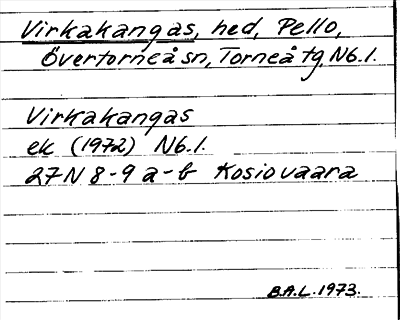 Virkakangas, hed, Pello,
Övertorneå sn, Torneå tg, Nb.l.
Virkakangas
ek (1972) Nb.l.
27N 8-9 a-b Kosiovaara
B.A.L. 1973.